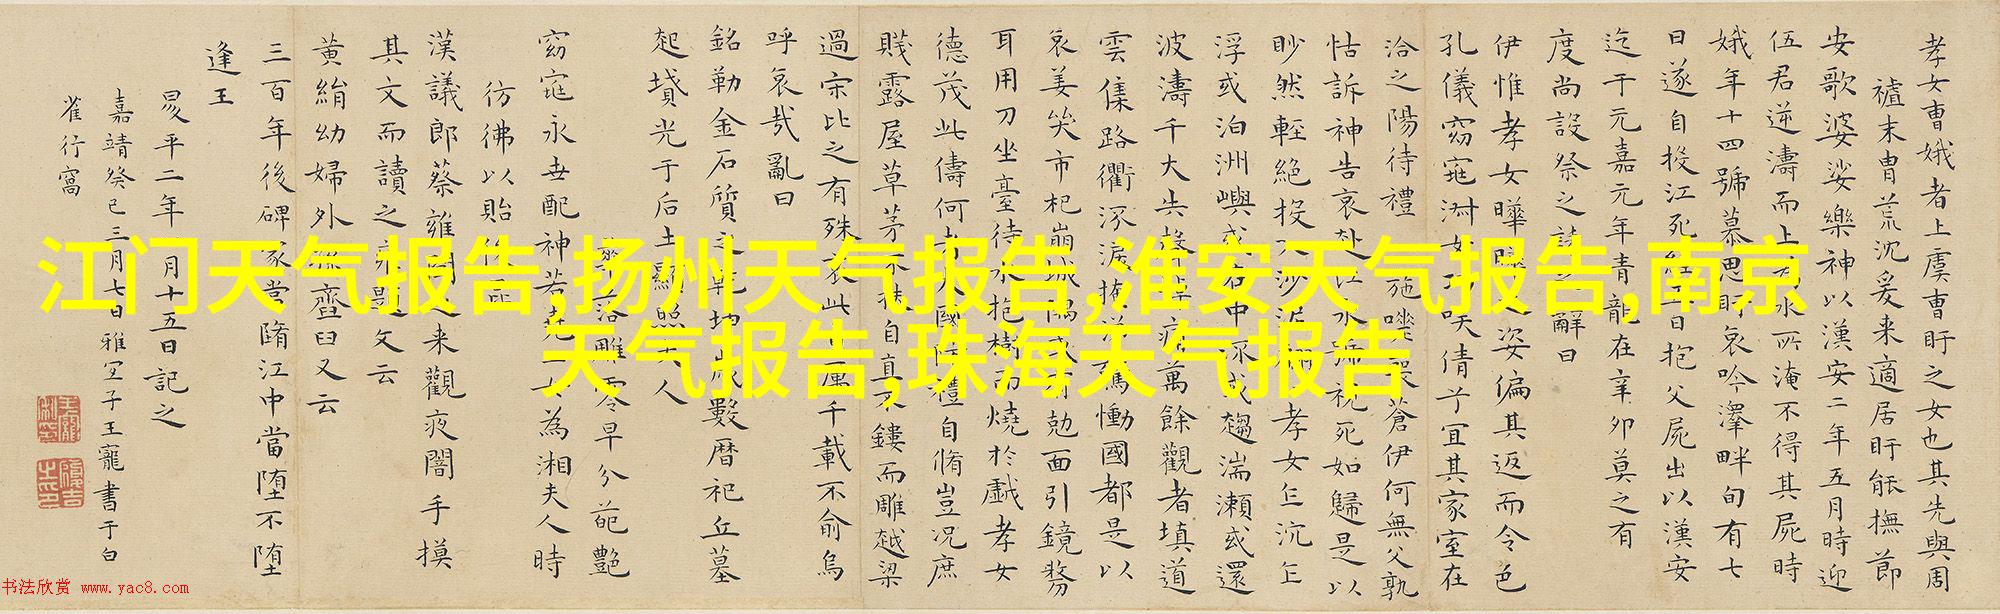 孝女曹娥者上虞曹盱之女也其先與周
末冑荒沈爰来適居盱能撫節
安歌婆娑樂神以漢安二年五月時迎
伍君逆濤而上為水所淹不得其屍時
娥年十四號慕思盱哀吟澤畔旬有七
日遂自投江死經五日抱父屍出以漢安
迄于元嘉元年青龍在辛卯莫之有
度尚設祭之誄之辭曰
伊惟孝女曄曄之姿偏其返而令色
孔儀窈窕淑女巧笑倩兮宜其家室在
洽之陽待禮未施嗟喪蒼伊何無父孰
怙訴神告哀赴江永號視死如歸是以
眇然輕絕投入沙泥翩翩孝女乍沉乍
浮或泊洲嶼或在中流或趨湍瀨或還
波濤千夫失聲悼痛萬餘觀者填道
雲集路衢泝淚掩涕驚慟國都是以
哀姜哭市杞崩城隅或有尅面引鏡剺
耳用刀坐臺待水抱樹而燒於戲孝女
德茂此儔何者大國防禮自脩豈況庶
賤露屋草茅不扶自直不鏤而雕越梁
過宋比之有殊哀此貞厲千載不俞烏
呼哀哉亂曰
銘勒金石質之乾坤歲數曆祀丘墓
起墳光于后土顯照夫人
華落雕零早分葩艷
窈窕永世配神若堯二女為湘夫人時
彷彿以貽後昆
漢議郎蔡雍聞之来觀夜闇手摸
其文而讀之雍題文云
黄絹幼婦外孫齏臼又云
三百年後碑冢當墮江中當墮不墮
逢王
昇平二年八月十五日記之
嘉靖癸巳三月七日雅宜子王寵書于白
雀行窩
江门天气报告,扬州天气报告,淮安天气报告,南京
天气报告,珠海天气报告
书法欣赏 www.yac8.com